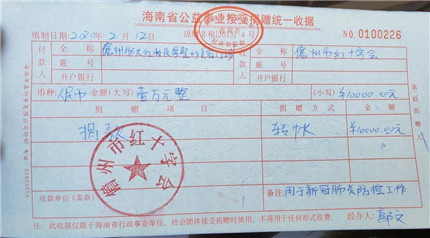 海南省公益事业接受捐赠统一收据
填制日期：2020年2月12日
No. 0100226
付款 全称
账号
开户银行
收款 全称 儋州市红十字会
账号
开户银行
币种：人民币 金额(大写) 壹万元整 (小写) ¥10000.00元
捐赠项目 捐赠方式 金额
捐款 转帐 ¥10000.00元
儋州市红十字会
收款单位(盖章)
备注 用于新冠肺炎防控工作
注：此收据仅限于海南省行政事业单位、社会团体接受捐赠时使用，不得用于任何形式收费。 经办人：